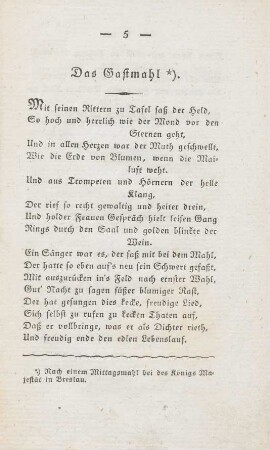 — 5 —
Das Gastmahl *).
Mit seinen Rittern zu Tafel saß der Held,
So hoch und herrlich wie der Mond vor den
Sternen geht,
Und in allen Herzen war der Muth geschwellt,
Wie die Erde von Blumen, wenn die Mai-
luft weht.
Und aus Trompeten und Hörnern der helle
Klang,
Der rief so recht gewaltig und heiter drein,
Und holder Frauen Gespräch hielt leisen Gang
Rings durch den Saal und golden blinkte der
Wein.
Ein Sänger war es, der saß mit bei dem Mahl,
Der hatte so eben auf's neu sein Schwert gefaßt,
Mit auszurücken in's Feld nach ernster Wahl,
Gut' Nacht zu sagen süßer blumiger Rast,
Der hat gesungen dies kecke, freudige Lied,
Sich selbst zu rufen zu kecken Thaten auf,
Daß er vollbringe, was er als Dichter rieth,
Und freudig ende den edlen Lebenslauf.
*) Nach einem Mittagsmahl bei des Königs Ma-
jestät in Breslau.